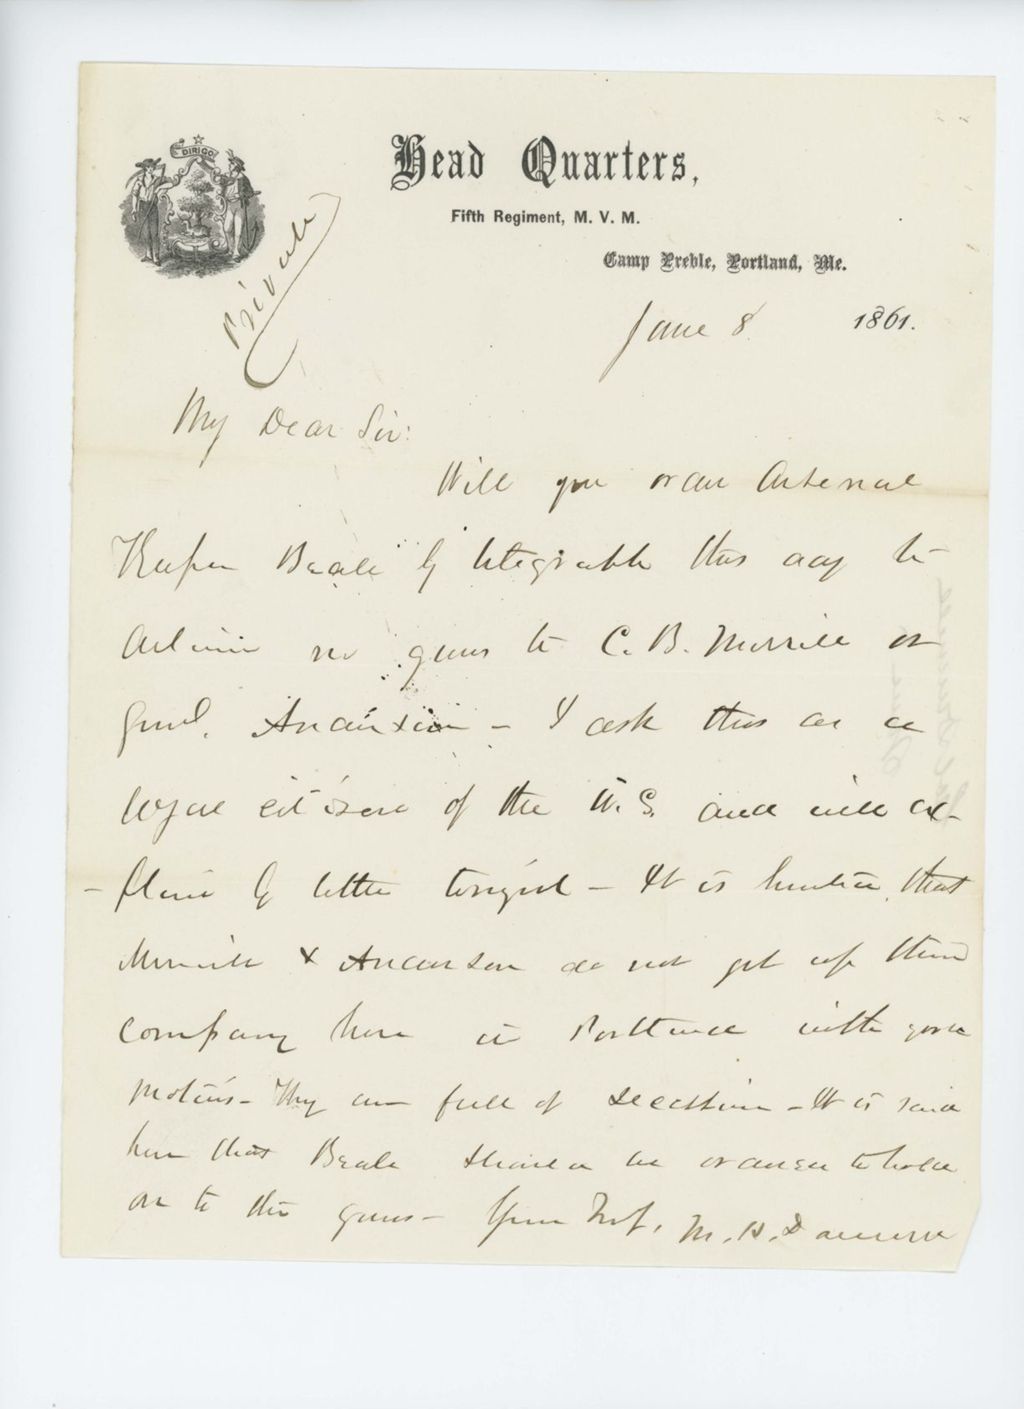 DIRIGO
Head Quarters,
Fifth Regiment, M. V. M.
Camp Preble, Portland, Me.
Private
June 8 1861.
My Dear Sir:
Will you order Arsenal
Keeper Beale by telegraph this day to
deliver no guns to C. B. Merrill or
Genl. Anderson - I ask this as a
loyal citizen of the U. S. and will ex-
- plain by letter tonight - It is that
Merrill & Anderson do not get up their
company here in Portland with good
motives - They are full of secession - It is said
here that Beale should be ordered to hold
on to the guns - Your M. H. Dunnell